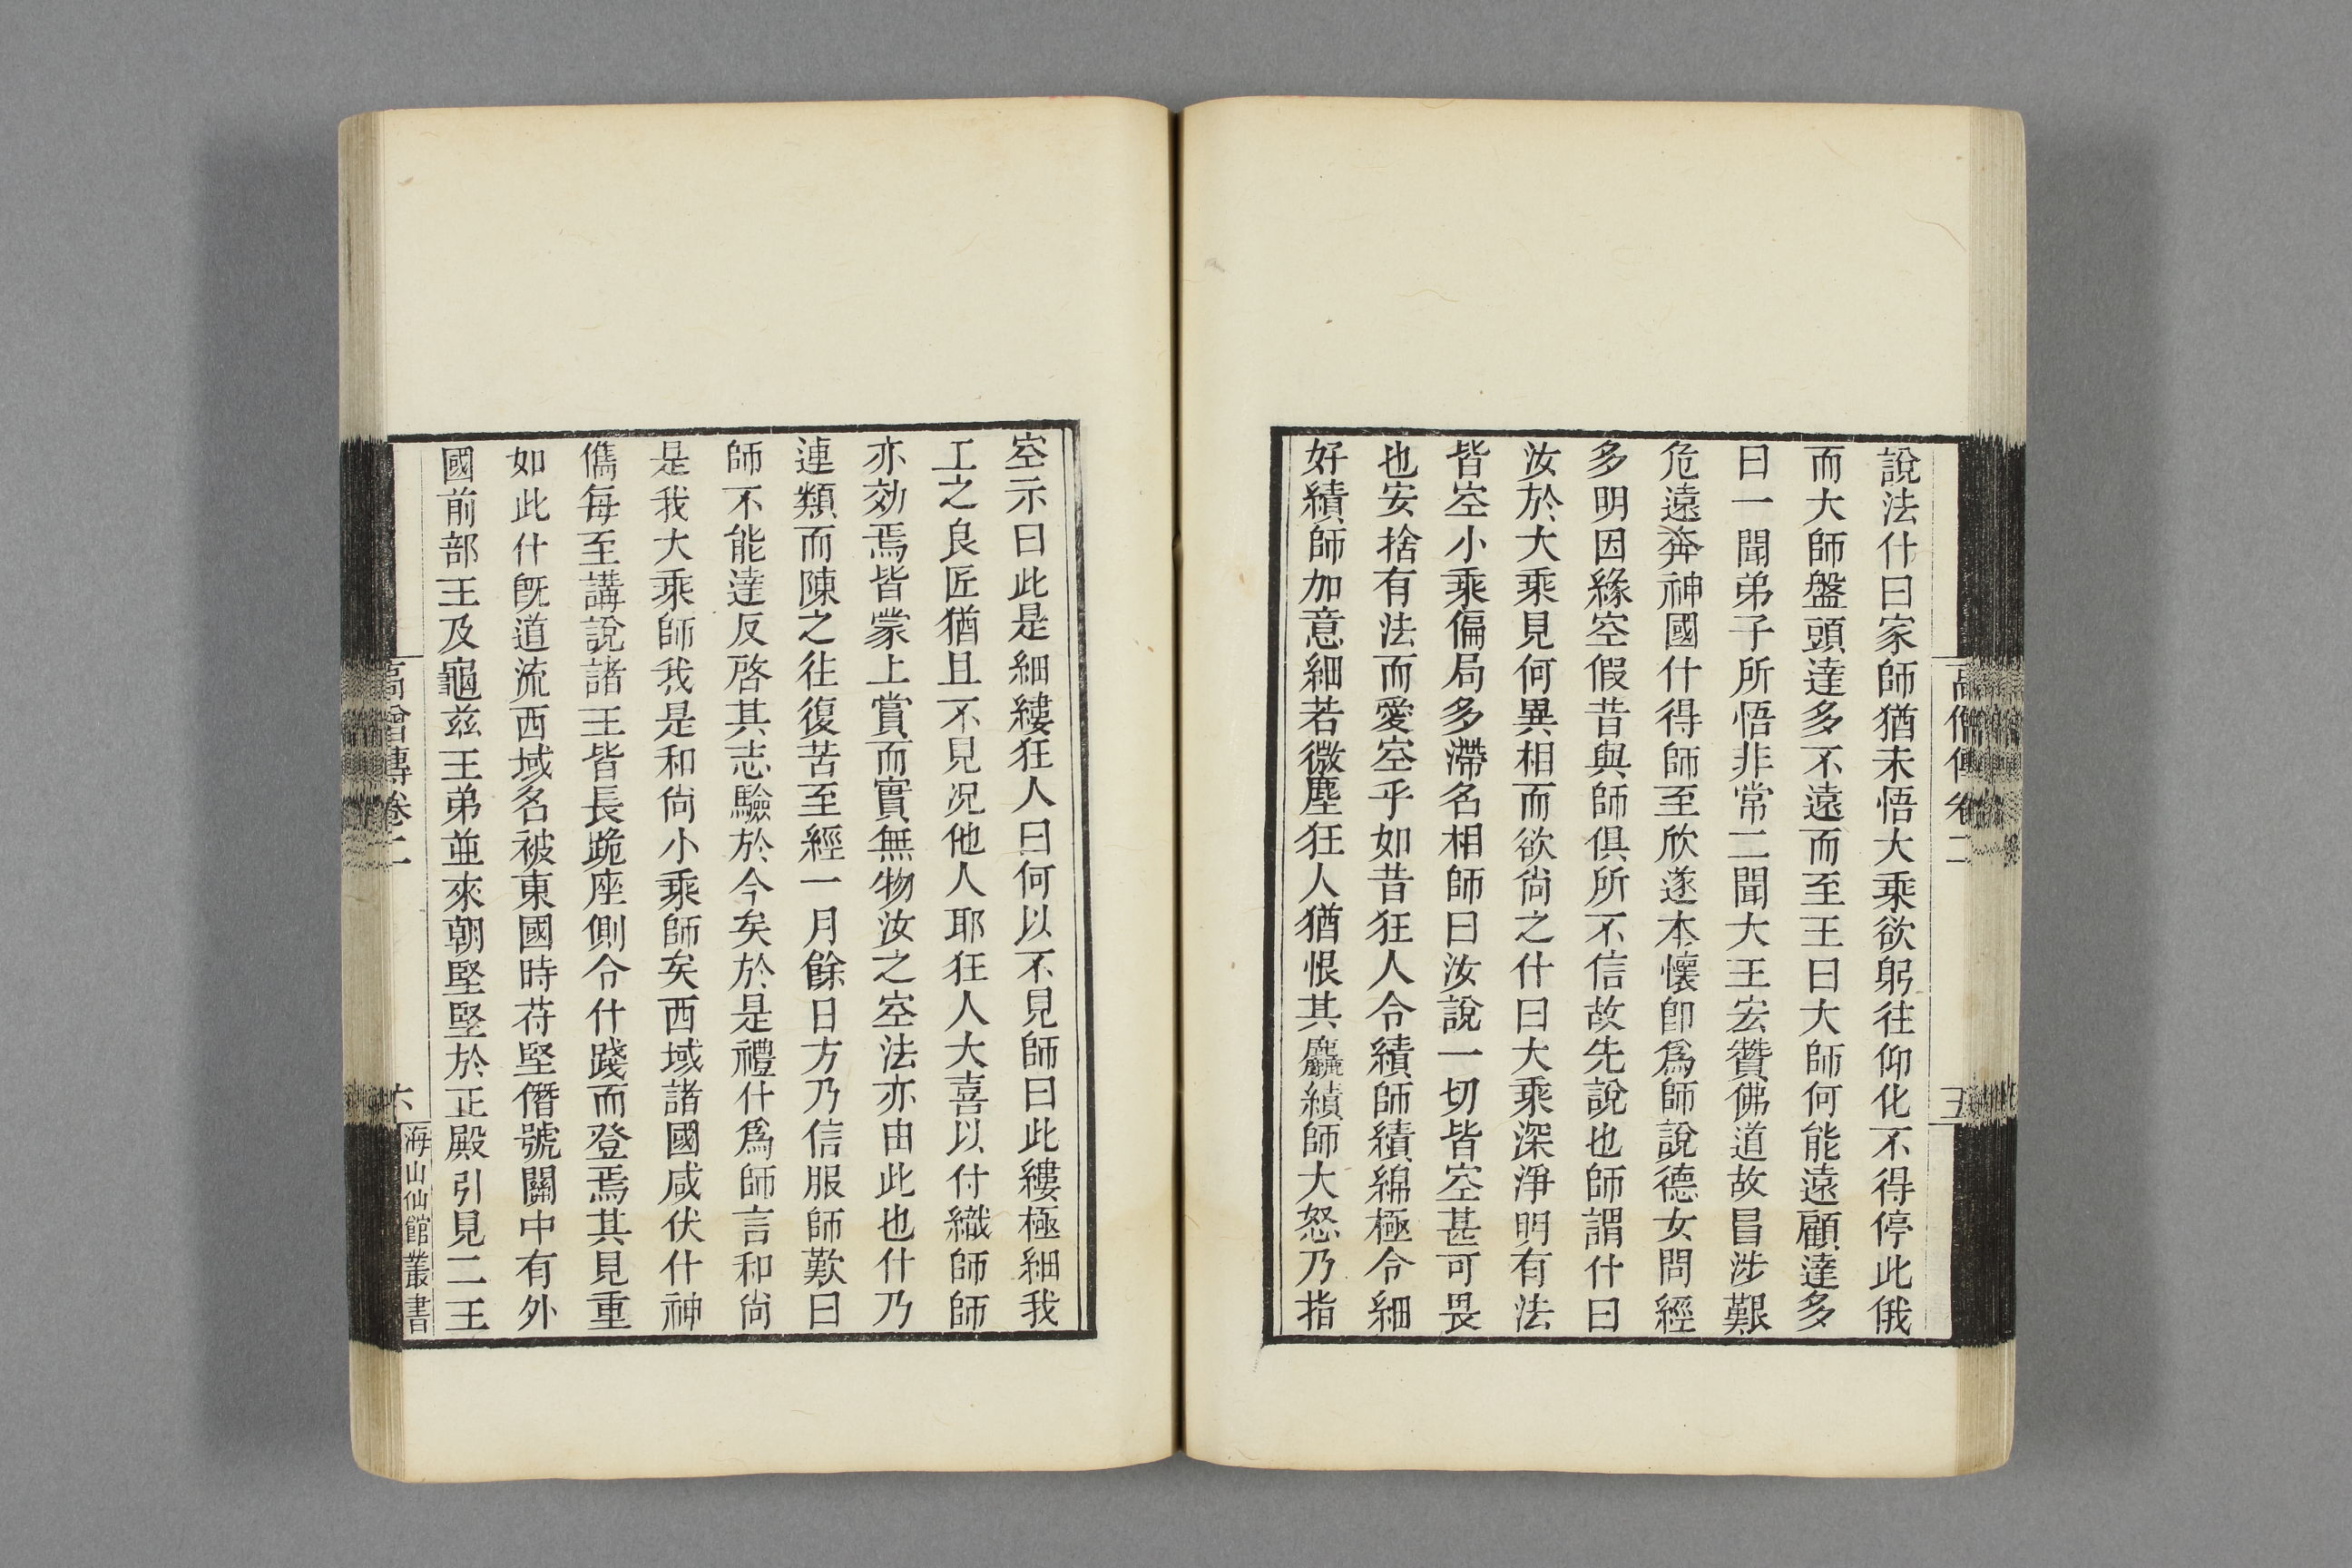 高僧傳卷二
五
說法什曰家師猶未悟大乘欲躬往仰化不得停此俄
而大師盤頭達多不遠而至王曰大師何能遠顧達多
曰一聞弟子所悟非常二聞大王宏贊佛道故冒涉艱
危遠奔神國什得師至欣遂本懷卽爲師說德女問經
多明因緣空假昔與師俱所不信故先說也師謂什曰
汝於大乘見何異相而欲尙之什曰大乘深淨明有法
皆空小乘偏局多滯名相師曰汝說一切皆空甚可畏
也安捨有法而愛空乎如昔狂人令績師績綿極令細
好績師加意細若微塵狂人猶恨其麤績師大怒乃指
空示曰此是細縷狂人曰何以不見師曰此縷極細我
工之良匠猶且不見况他人耶狂人大喜以付織師師
亦効焉皆蒙上賞而實無物汝之空法亦由此也什乃
連類而陳之往復苦至經一月餘日方乃信服師歎曰
師不能達反啓其志驗於今矣於是禮什爲師言和尙
是我大乘師我是和尙小乘師矣西域諸國咸伏什神
儁每至講說諸王皆長跪座側令什踐而登焉其見重
如此什旣道流西域名被東國時苻堅僭號關中有外
國前部王及龜茲王弟並來朝堅堅於正殿引見二王
高僧傳卷二
六
海山仙館叢書